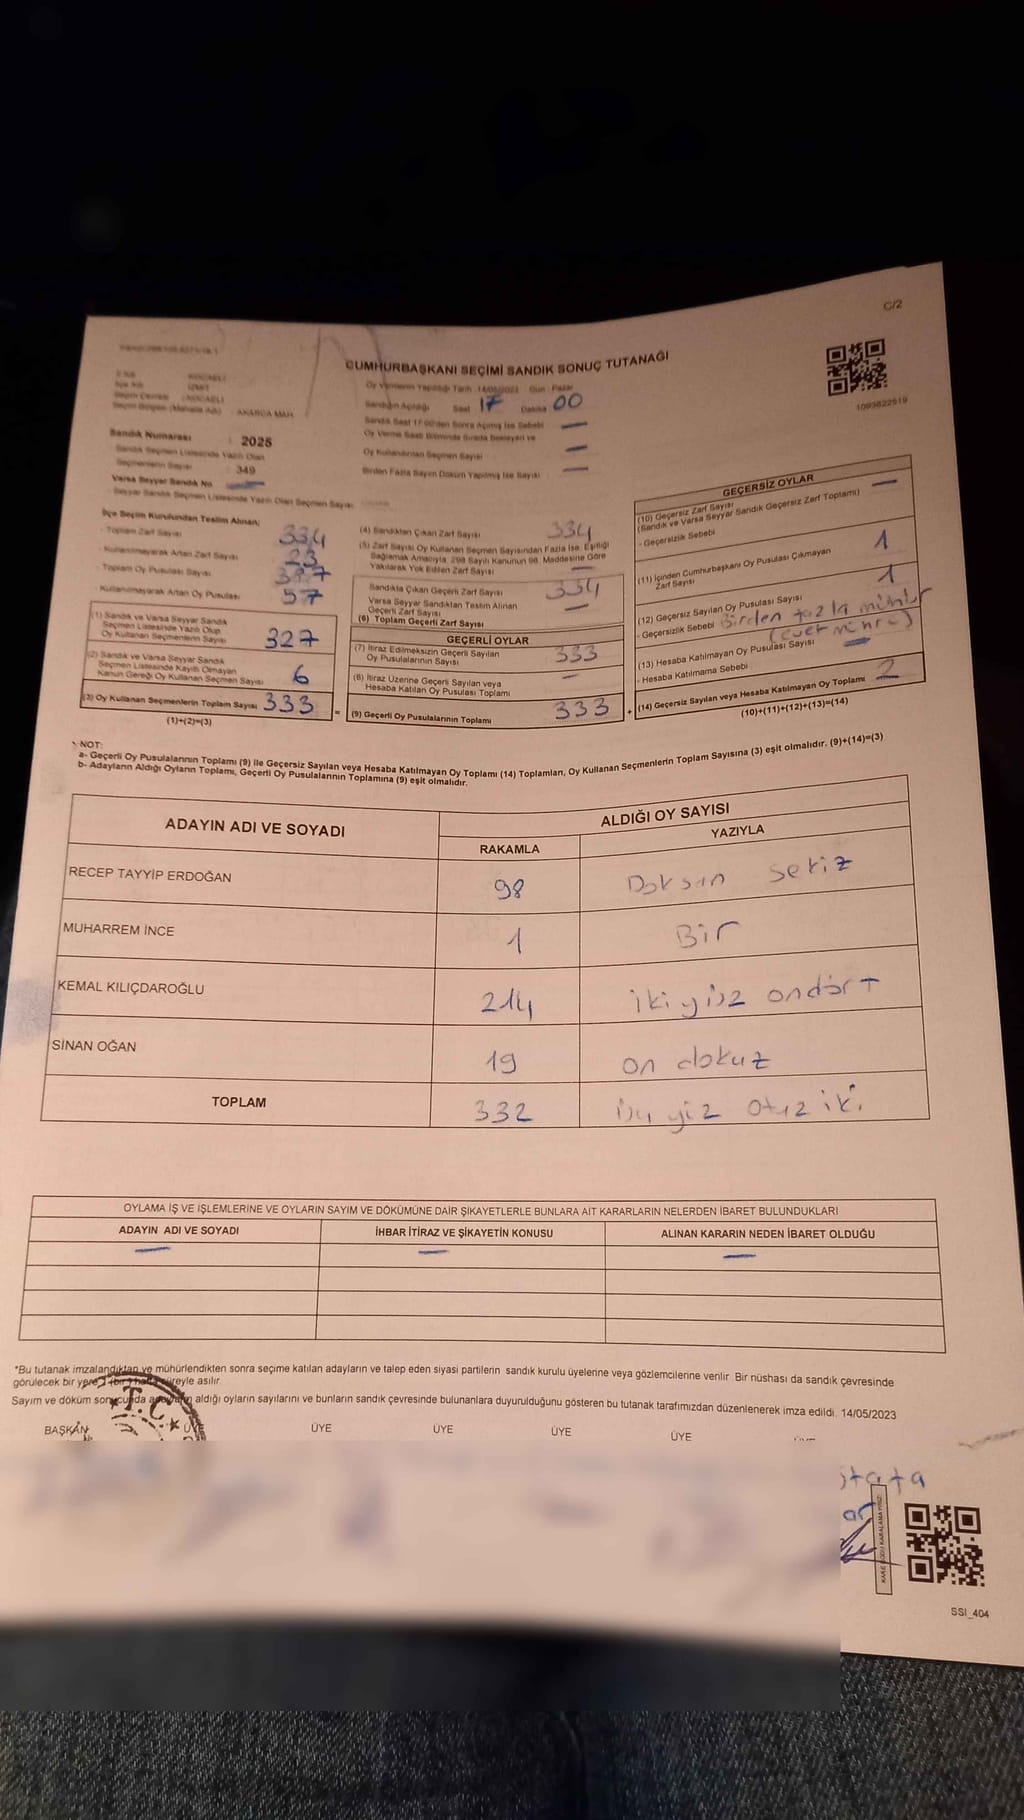 C/2
CUMHURBAŞKANI SEÇİMİ SANDIK SONUÇ TUTANAĞI
1093822519
İl Adı : KOCAELİ
İlçe Adı : İZMİT
Seçim Çevresi : KOCAELİ
Seçim Bölgesi (Mahalle Adı) : AKARCA MAH.
Sandık Numarası : 2025
Sandık Seçmen Listesinde Yazılı Olan
Seçmenlerin Sayısı : 349
Varsa Seyyar Sandık No
Seyyar Sandık Seçmen Listesinde Yazılı Olan Seçmen Sayısı
Oy Vermenin Yapıldığı Tarih : 14/05/2023 Gün : Pazar
Sandığın Açıldığı Saat 17 Dakika 00
Sandık Saat 17:00'den Sonra Açılmış İse Sebebi —
Oy Verme Saati Bitiminde Sırada Bekleyen ve
Oy Kullandırılan Seçmen Sayısı —
Birden Fazla Sayım Döküm Yapılmış İse Sayısı —
İlçe Seçim Kurulundan Teslim Alınan;
- Toplam Zarf Sayısı 334
- Kullanılmayarak Artan Zarf Sayısı 23
- Toplam Oy Pusulası Sayısı
- Kullanılmayarak Artan Oy Pusulası 57
(1) Sandık ve Varsa Seyyar Sandık
Seçmen Listesinde Yazılı Olup
Oy Kullanan Seçmenlerin Sayısı 327
(2) Sandık ve Varsa Seyyar Sandık
Seçmen Listesinde Kayıtlı Olmayan
Kanun Gereği Oy Kullanan Seçmen Sayısı 6
(3) Oy Kullanan Seçmenlerin Toplam Sayısı 333
(1)+(2)=(3)
(4) Sandıktan Çıkan Zarf Sayısı 334
(5) Zarf Sayısı Oy Kullanan Seçmen Sayısından Fazla İse, Eşitliği
Sağlamak Amacıyla, 298 Sayılı Kanunun 98. Maddesine Göre
Yakılarak Yok Edilen Zarf Sayısı —
Sandıkta Çıkan Geçerli Zarf Sayısı 334
Varsa Seyyar Sandıktan Teslim Alınan
Geçerli Zarf Sayısı —
(6) Toplam Geçerli Zarf Sayısı
GEÇERLİ OYLAR
(7) İtiraz Edilmeksizin Geçerli Sayılan
Oy Pusulalarının Sayısı 333
(8) İtiraz Üzerine Geçerli Sayılan veya
Hesaba Katılan Oy Pusulası Toplamı —
= (9) Geçerli Oy Pusulalarının Toplamı 333 +
GEÇERSİZ OYLAR
(10) Geçersiz Zarf Sayısı —
(Sandık ve Varsa Seyyar Sandık Geçersiz Zarf Toplamı)
- Geçersizlik Sebebi
(11) İçinden Cumhurbaşkanı Oy Pusulası Çıkmayan
Zarf Sayısı 1
(12) Geçersiz Sayılan Oy Pusulası Sayısı 1
- Geçersizlik Sebebi Birden fazla mühür
(evet mührü)
(13) Hesaba Katılmayan Oy Pusulası Sayısı —
- Hesaba Katılmama Sebebi
(14) Geçersiz Sayılan veya Hesaba Katılmayan Oy Toplamı 2
(10)+(11)+(12)+(13)=(14)
NOT:
a- Geçerli Oy Pusulalarının Toplamı (9) ile Geçersiz Sayılan veya Hesaba Katılmayan Oy Toplamı (14) Toplamları, Oy Kullanan Seçmenlerin Toplam Sayısına (3) eşit olmalıdır. (9)+(14)=(3)
b- Adayların Aldığı Oyların Toplamı, Geçerli Oy Pusulalarının Toplamına (9) eşit olmalıdır.
ADAYIN ADI VE SOYADI ALDIĞI OY SAYISI
RAKAMLA YAZIYLA
RECEP TAYYİP ERDOĞAN 98 Doksan sekiz
MUHARREM İNCE 1 Bir
KEMAL KILIÇDAROĞLU 214 iki yüz ondört
SİNAN OĞAN 19 on dokuz
TOPLAM 332 otuz iki
OYLAMA İŞ VE İŞLEMLERİNE VE OYLARIN SAYIM VE DÖKÜMÜNE DAİR ŞİKAYETLERLE BUNLARA AİT KARARLARIN NELERDEN İBARET BULUNDUKLARI
ADAYIN ADI VE SOYADI İHBAR İTİRAZ VE ŞİKAYETİN KONUSU ALINAN KARARIN NEDEN İBARET OLDUĞU
— — —
*Bu tutanak imzalandıktan ve mühürlendikten sonra seçime katılan adayların ve talep eden siyasi partilerin sandık kurulu üyelerine veya gözlemcilerine verilir. Bir nüshası da sandık çevresinde
görülecek bir yere 1 (bir) hafta süreyle asılır.
Sayım ve döküm sonucunda adayların aldığı oyların sayılarını ve bunların sandık çevresinde bulunanlara duyurulduğunu gösteren bu tutanak tarafımızdan düzenlenerek imza edildi. 14/05/2023
T.C.
BAŞKAN ÜYE ÜYE ÜYE ÜYE ÜYE
SSI_404